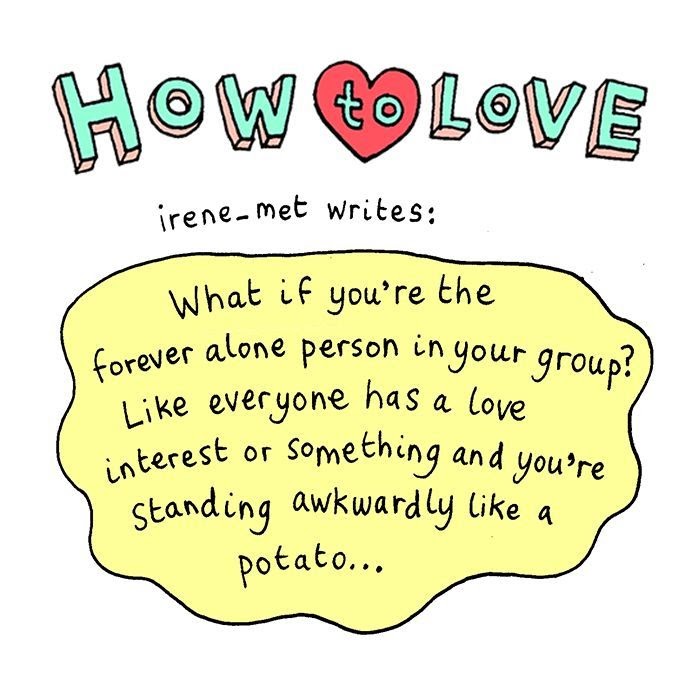 HOW to LOVE
irene-met writes:
What if you're the
forever alone person in your group?
Like everyone has a love
interest or something and you're
standing awkwardly like a
potato...